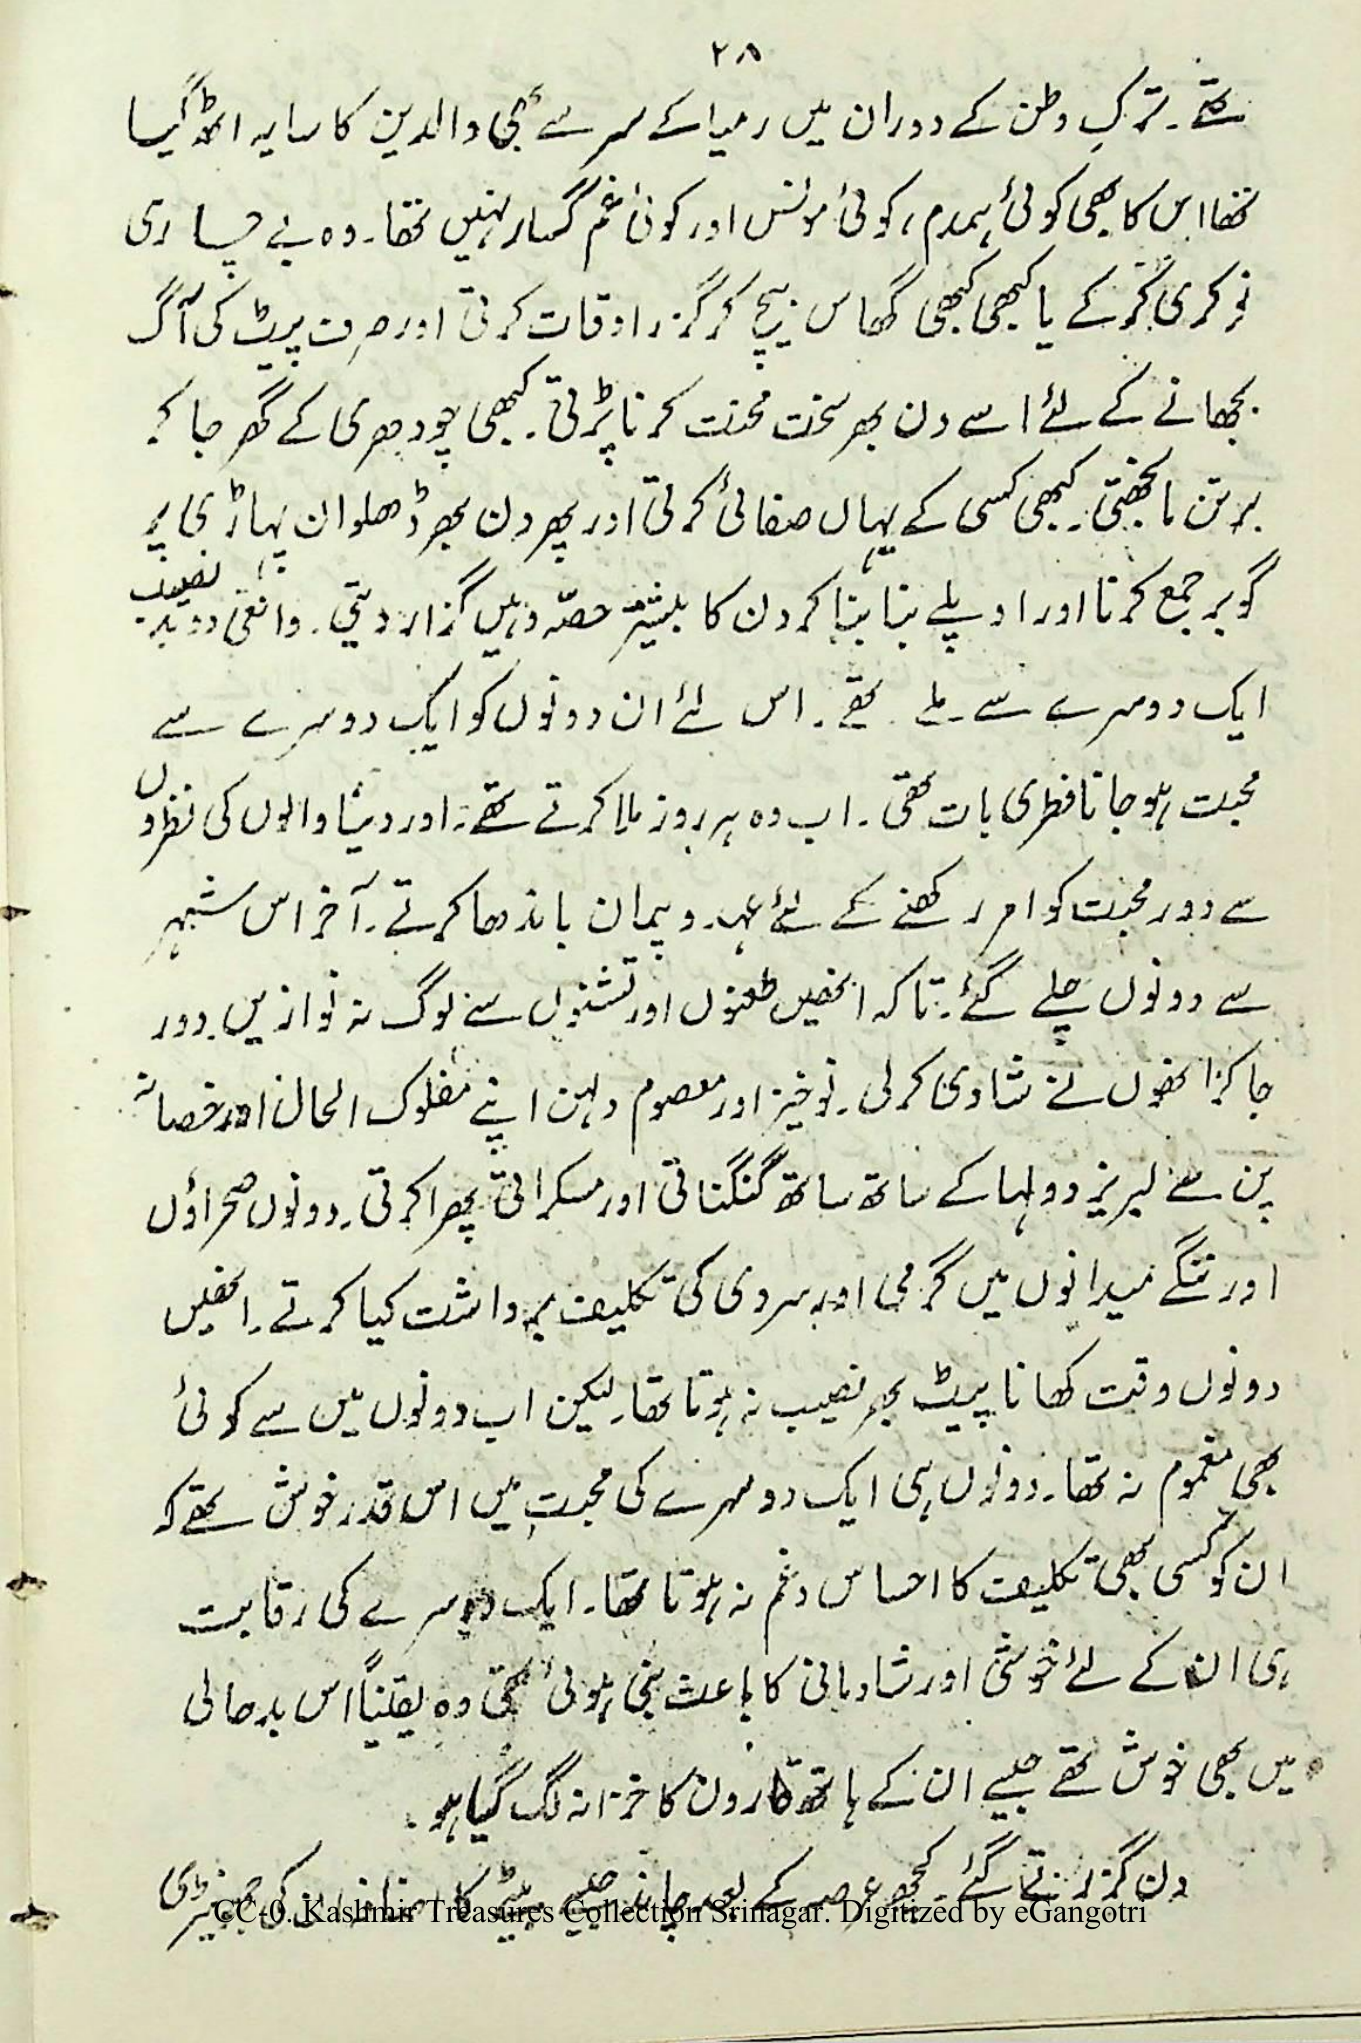 ۲۸
تھے۔ ترکِ وطن کے دوران میں رمیا کے سر سے بھی والدین کا سایہ اٹھ گیا
تھا اس کا بھی کوئی ہمدم، کوئی مونس اور کوئی غم گسار نہیں تھا۔ وہ بے چاری
نوکری کرکے یا کبھی کبھی گھاس بیچ کر گزر اوقات کرتی اور صرف پیٹ کی آگ
بجھانے کے لئے اسے دن بھر سخت محنت کرنا پڑتی۔ کبھی چودھری کے گھر جا کر
برتن مانجھتی۔ کبھی کسی کے یہاں صفائی کرتی اور پھر دن بھر ڈھلوان پہاڑی پر
گوبر جمع کرنا اور اوپلے بنا بنا کر دن کا بیشتر حصّہ وہیں گزار دیتی۔ واقعی دو بد نصیب
ایک دوسرے سے ملے تھے۔ اس لئے ان دونوں کو ایک دوسرے سے
محبت ہو جانا فطری بات تھی۔ اب وہ ہر روز ملا کرتے تھے۔ اور دنیا والوں کی نظروں
سے دور محبت کو امر رکھنے کے لئے عہد و پیمان باندھا کرتے۔ آخر اس شہر
سے دونوں چلے گئے۔ تاکہ انھیں طعنوں اور تشنوں سے لوگ نہ نوازیں۔ دور
جا کر انھوں نے شادی کرلی۔ نوخیز اور معصوم دلہن اپنے مفلوک الحال اور
پن سے لبریز دولہا کے ساتھ ساتھ گنگناتی اور مسکراتی پھرا کرتی۔ دونوں صحراؤں
اور ننگے میدانوں میں گرمی اور سردی کی تکلیف برداشت کیا کرتے۔ انھیں
دونوں وقت کھانا پیٹ بھر نصیب نہ ہوتا تھا۔ لیکن اب دونوں میں سے کوئی
بھی مغموم نہ تھا۔ دونوں ہی ایک دوسرے کی محبت میں اس قدر خوش تھے کہ
ان کو کسی بھی تکلیف کا احساس و غم نہ ہوتا تھا۔ ایک دوسرے کی رقابت
ہی ان کے لئے خوشی اور شادمانی کا باعث بنی ہوئی تھی وہ یقیناً اس بدحالی
میں بھی خوش تھے جیسے ان کے ہاتھ قارون کا خزانہ لگ گیا ہو۔
دن گزرتے گئے۔ کچھ عرصہ کے بعد چاند جیسے بیٹے کا ان کی
CC-0. Kashmir Treasures Collection Srinagar. Digitized by eGangotri